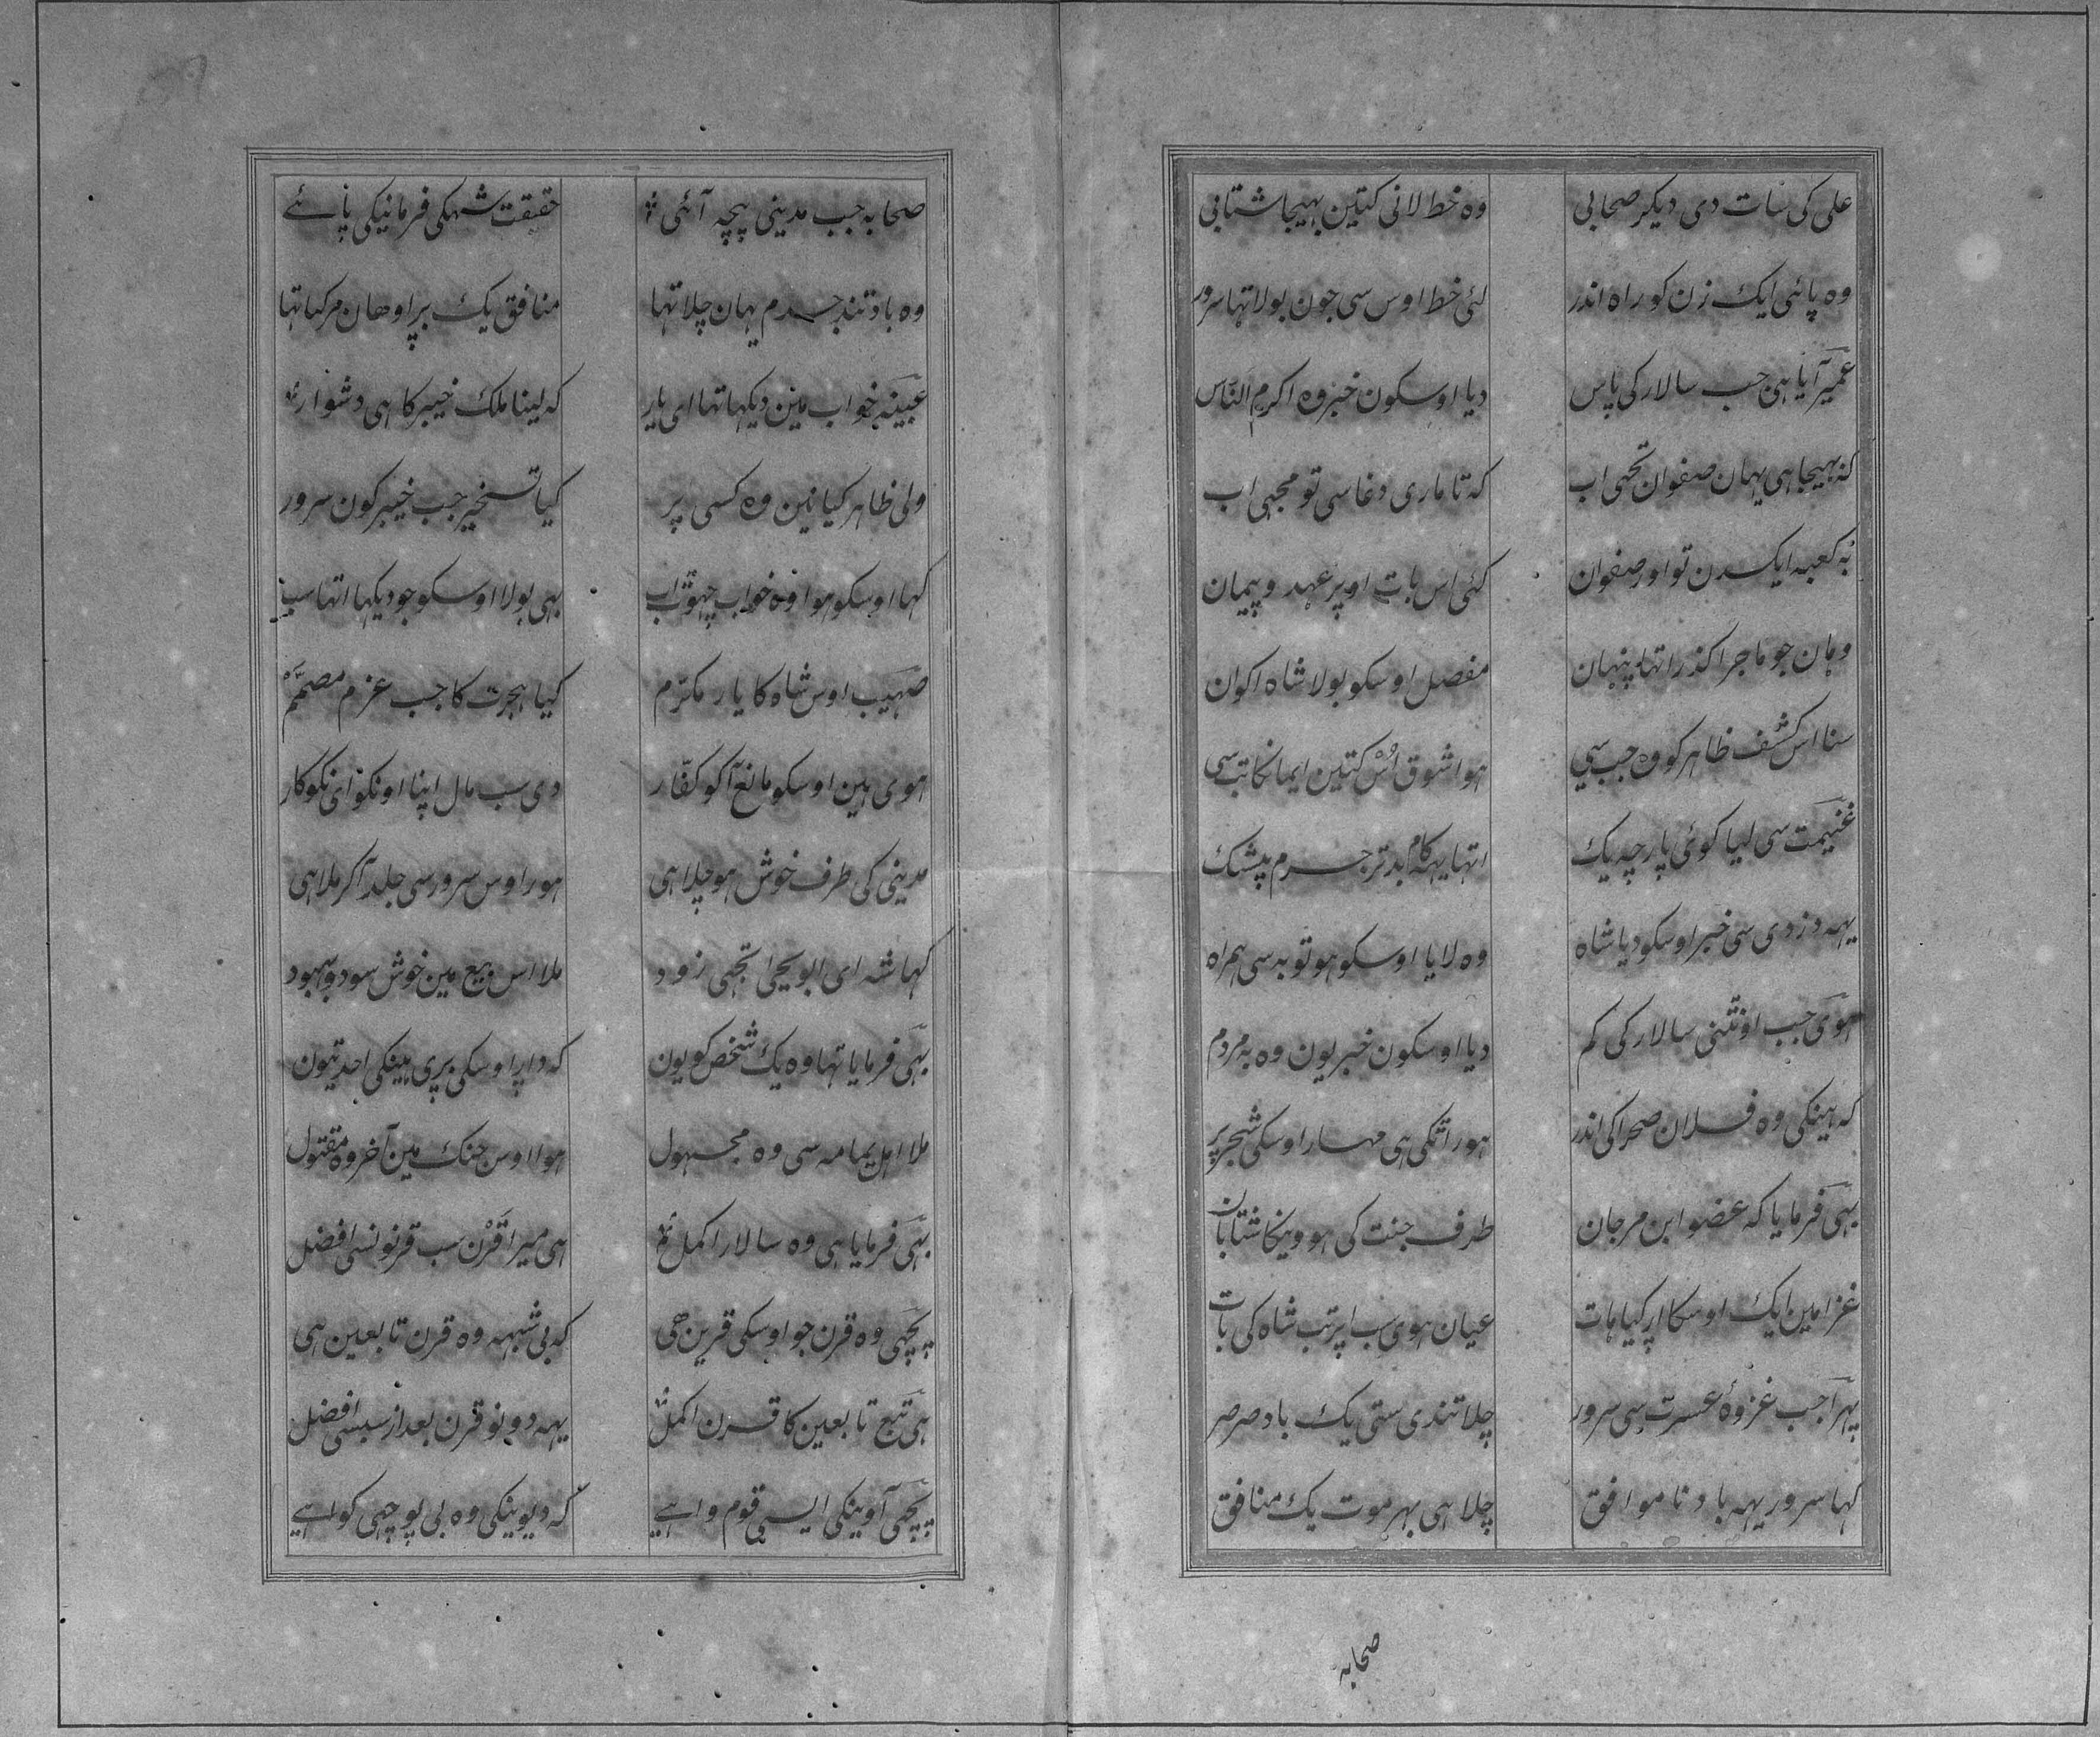 علی کی سات دی دیکر صحابی وہ خط لانی کتین بهیجا شتابی
وہ پائی ایک زن کو راہ اندر لئی خط اوس سی جون بولا تها سرور
عمیر آیا هی جب سالار کی پاس دیا اوسکون خبر وہ اکرم النّاس
کہ بهیجا هی یهان صفوان تجی اب کہ تا ماری دغا سی تو مجهی اب
بہ کعبہ ایکدن تو اور صفوان کئی اس بات اوپر عهد و پیمان
وهان جو ماجرا کذرا تها پنهان مفصل اوسکو بولا شاہ اکوان
سنا اس کشف ظاهر کو وہ جب سی هوا شوق اُسْ کتین ایمانکا تب سی
غنیمت سی لیا کوئی پارچہ یک اتها یهہ کام بدتر جرم پیشک
یهہ دزدی سی خبر اوسکو دیا شاہ وہ لایا اوسکو هو توبہ سی همراہ
هوی جب اونٹنی سالار کی کم دیا اوسکون خبر یون وہ بہ مردم
کہ هینکی وہ فلان صحرا کی اندر هور اٹکی هی مهار اوسکی شجر پر
بهی فرمایا کہ عضو ابن مرجان طرف جنت کی هووینکا شتابان
غزا مین ایک اوسکا پر کیا هات عیان هوی سب اپر تب شاہ کی بات
پهرا جب غزوۂ عسرت سی سرور چلا تندی ستی یک باد صرصر
کها سرور یهہ باد نا موافق چلا هی بهر موت یک منافق
صحابہ
صحابہ جب مدینی پیچہ آئی حقیقت شهکی فرمانیکی پائے
وہ باد تند جسدم یهان چلا تها منافق یک برا وهان مر کیا تها
عیینہ خواب مین دیکها تها ای یار کہ لینا ملک خیبر کا هی دشوار
ولی ظاهر کیا نین وہ کسی پر کیا تسخیر جب خیبر کون سرور
کها اوسکو هوا وہ خواب جهوٹ اب بهی بولا اوسکو جو دیکها اتها سب
صهیب اوس شاہ کا یار مکرّم کیا هجرت کا جب عزم مصمّم
هوی هین اوسکو مانع آکو کفّار دی سب مال اپنا اونکو ای نکوکار
مدینی کی طرف خوش هو چلا هی هور اوس سرور سی جلد آکر ملا هی
کها شہ ای ابو یحیی تجهی زود ملا اس بیع مین خوش سود و بهبود
بهی فرمایا تها وہ یک شخص کو یون کہ داڑ اوسکی بڑی هینکی احد تیون
ملا اهل یمامہ سی وہ مجهول هوا اوس جنک مین آخر وہ مقتول
بهی فرمایا هی وہ سالار اکمل هی میرا قرْن سب قرنونسی افضل
پیچهی وہ قرن جو اوسکی قرین هی کہ بی شبهہ وہ قرن تابعین هی
هی تبع تابعین کا قرن اکمل یهہ دونو قرن بعد از سبسی افضل
پیچهی آوینکی ایسی قوم واهے کہ دیوینکی وہ بی پوچهی کواهے